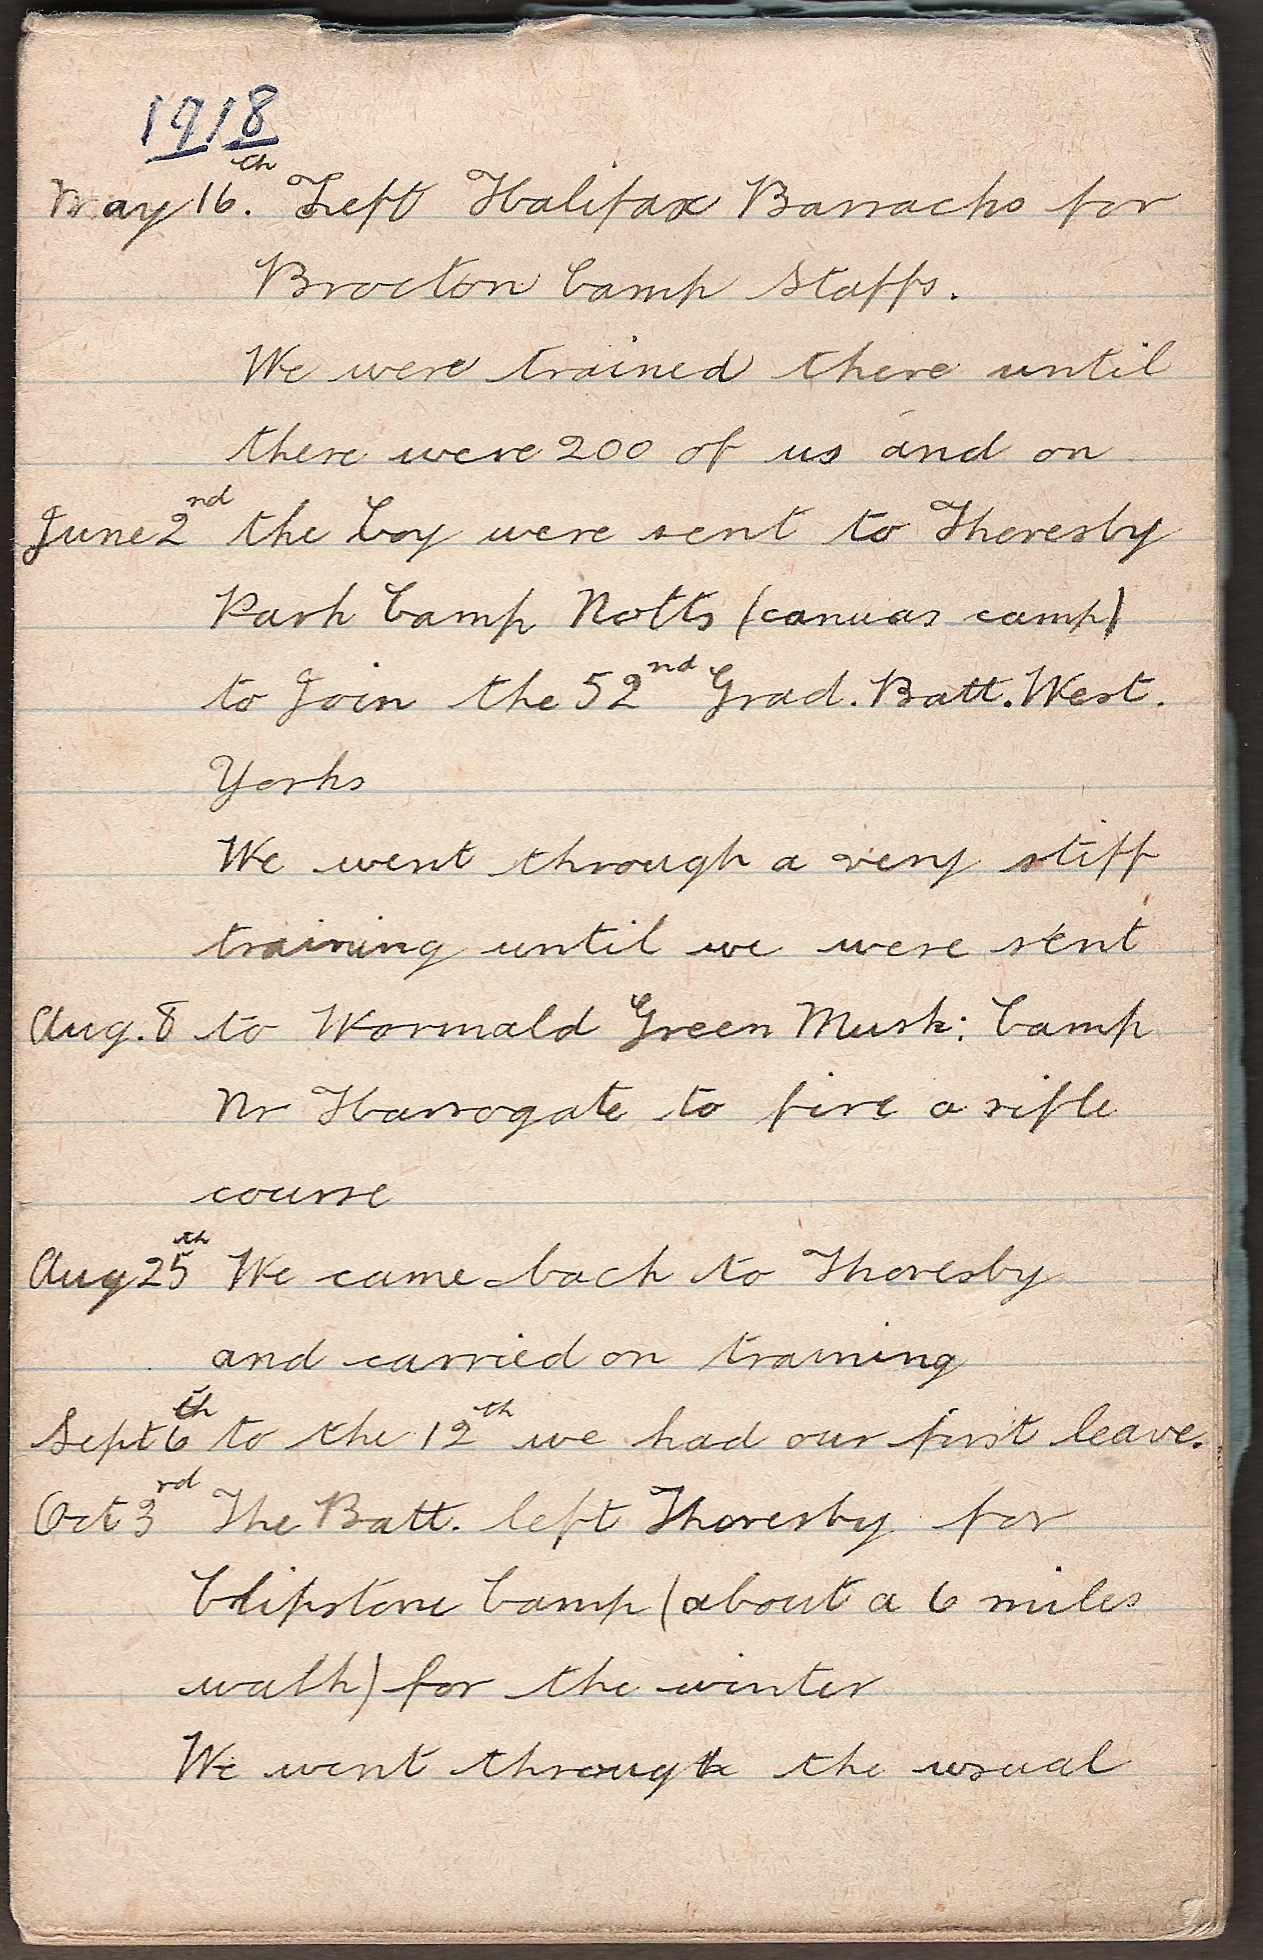 1918
May 16th. Left Halifax Barracks for
Brocton Camp Staffs.
We were trained there until
there were 200 of us and on
June 2nd the Coy were sent to Thoresby
Park Camp Notts (canvas camp)
to join the 52nd Grad. Batt. West.
Yorks
We went through a very stiff
training until we were sent
Aug. 8 to Wormald Green Musk: Camp
Nr Harrogate to fire a rifle
course
Aug 25th We came back to Thoresby
and carried on training
Sept 6th to the 12th we had our first leave.
Oct 3rd The Batt. left Thoresby for
Clipstone Camp (about a 6 miles
walk) for the winter
We went through the usual